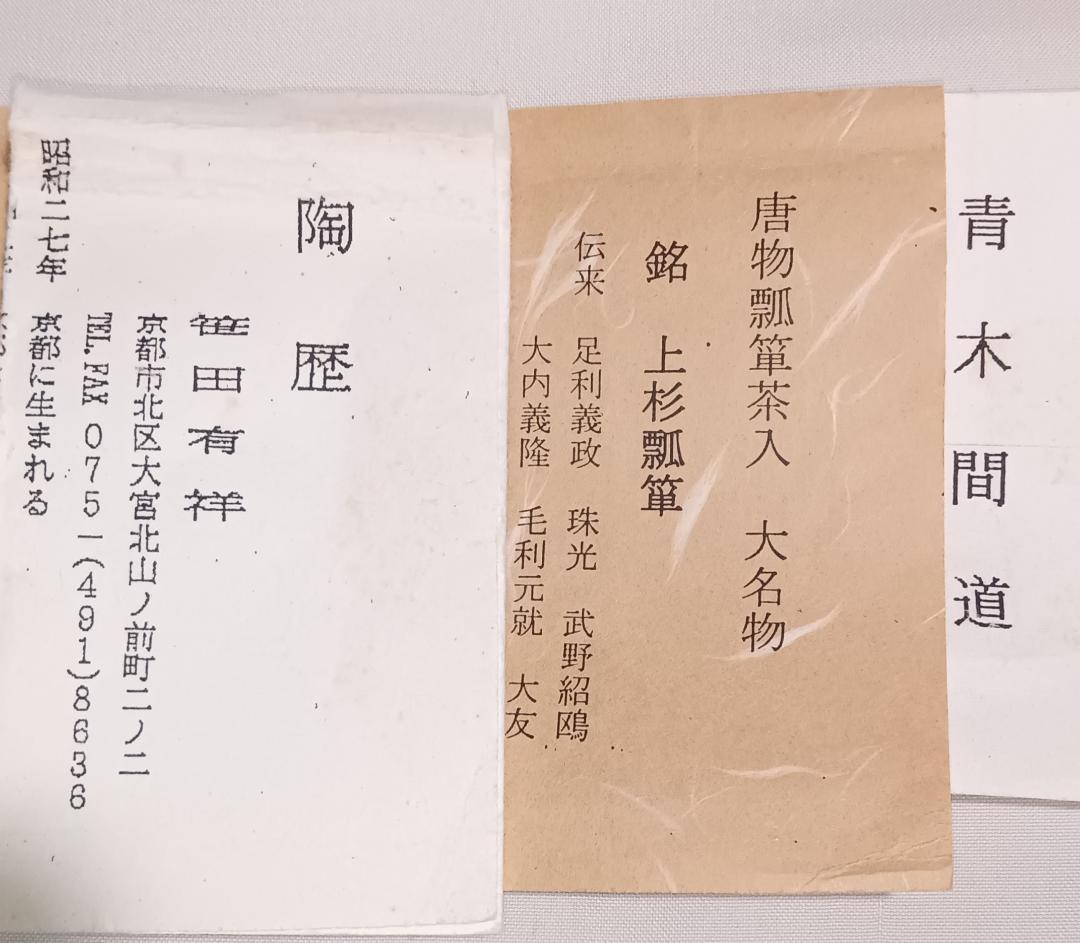 青木間道
唐物瓢箪茶入 大名物
銘 上杉瓢箪
伝来 足利義政 珠光 武野紹鴎
大内義隆 毛利元就 大友
陶歴
笹田有祥
京都市北区大宮北山ノ前町二ノ二
TEL.FAX 075-(491)8636
昭和二七年 京都に生まれる